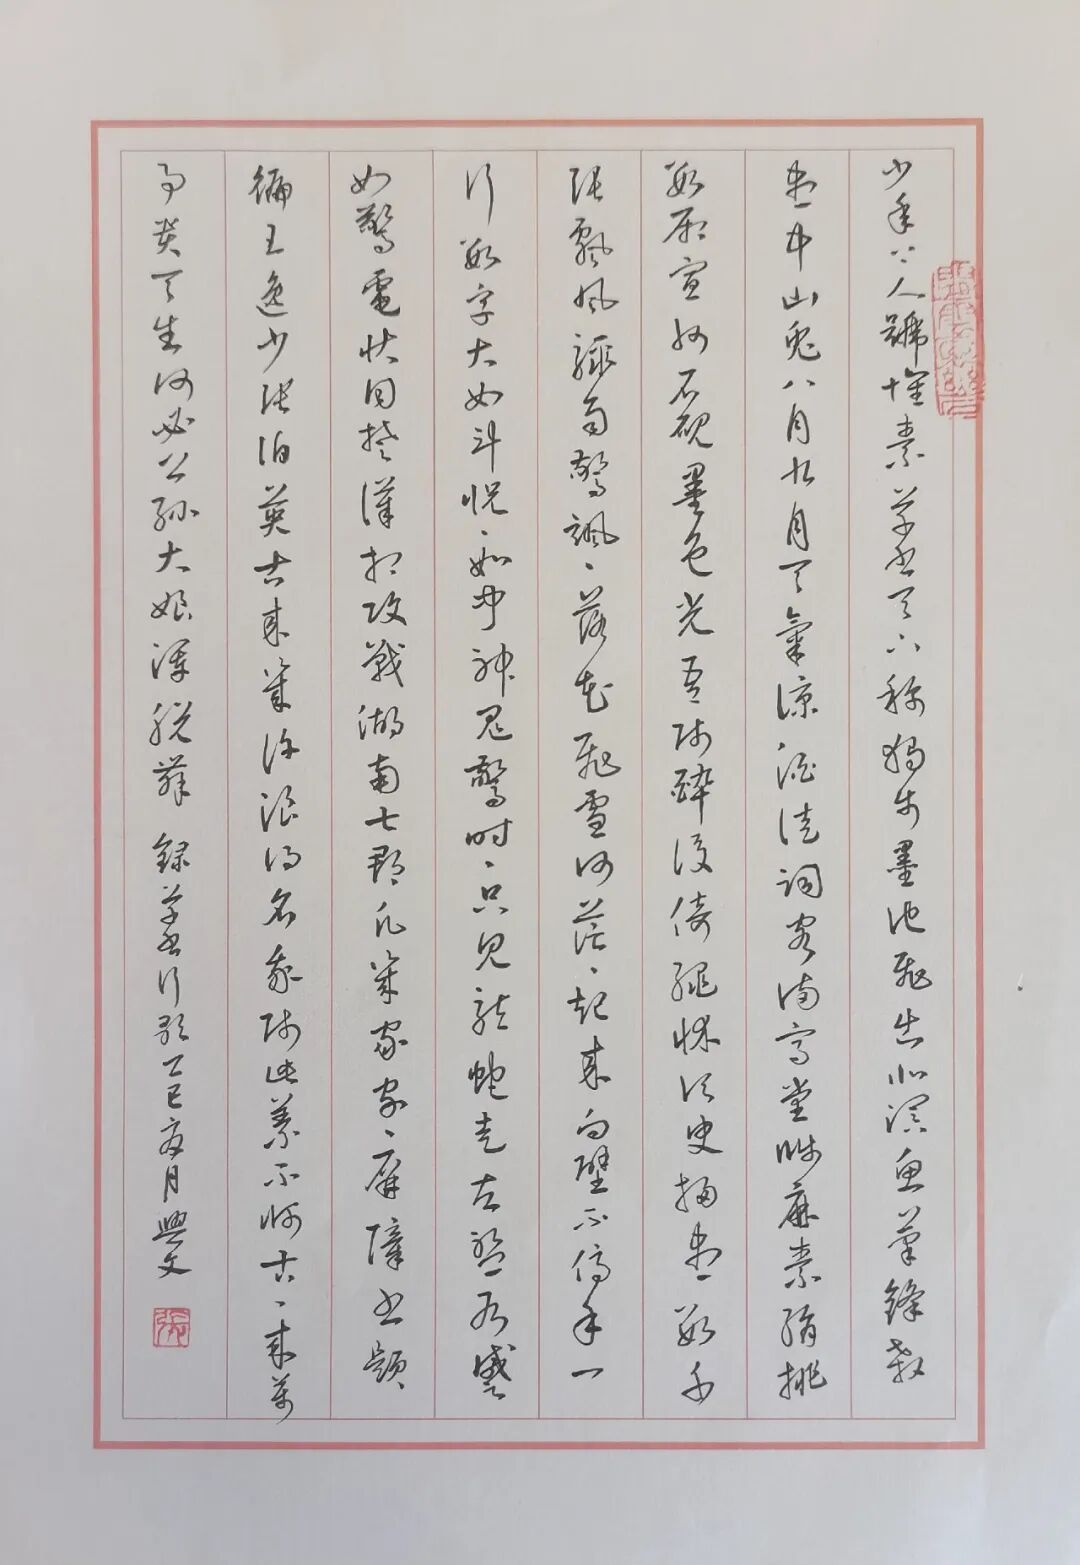 少年上人號懷素草書天下稱獨步墨池飛出北溟魚筆鋒殺
盡中山兔八月九月天氣涼酒徒詞客滿高堂牋麻素絹排
數廂宣州石硯墨色光吾師醉後倚繩床須臾掃盡數千
張飄風驟雨驚颯、落花飛雪何茫、起來向壁不停手一
行數字大如斗怳、如聞神鬼驚時、只見龍蛇走左盤右蹙
如驚電狀同楚漢相攻戰湖南七郡凡幾家家、屏障書題
徧王逸少張伯英古來幾許浪得名我師此義不師古、來萬
事貴天生何必公孫大娘渾脫舞 錄草書行歌乙巳夏月興文
張